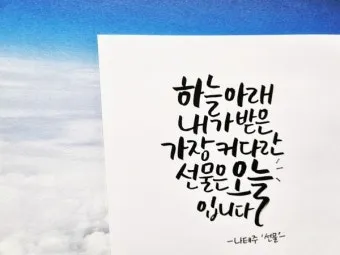 하늘 아래
내가 받은
가장 커다란
선물은 오늘
입니다
-나태주 '선물'-